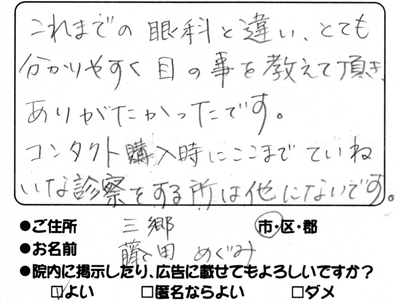 これまでの眼科と違い、とても
分かりやすく目の事を教えて頂き、
ありがたかったです。
コンタクト購入時にここまでていね
いな診察をする所は他にないです。
●ご住所 三郷 市・区・郡
●お名前 藤田 めぐみ
●院内に掲示したり、広告に載せてもよろしいですか?
□よい □匿名ならよい □ダメ